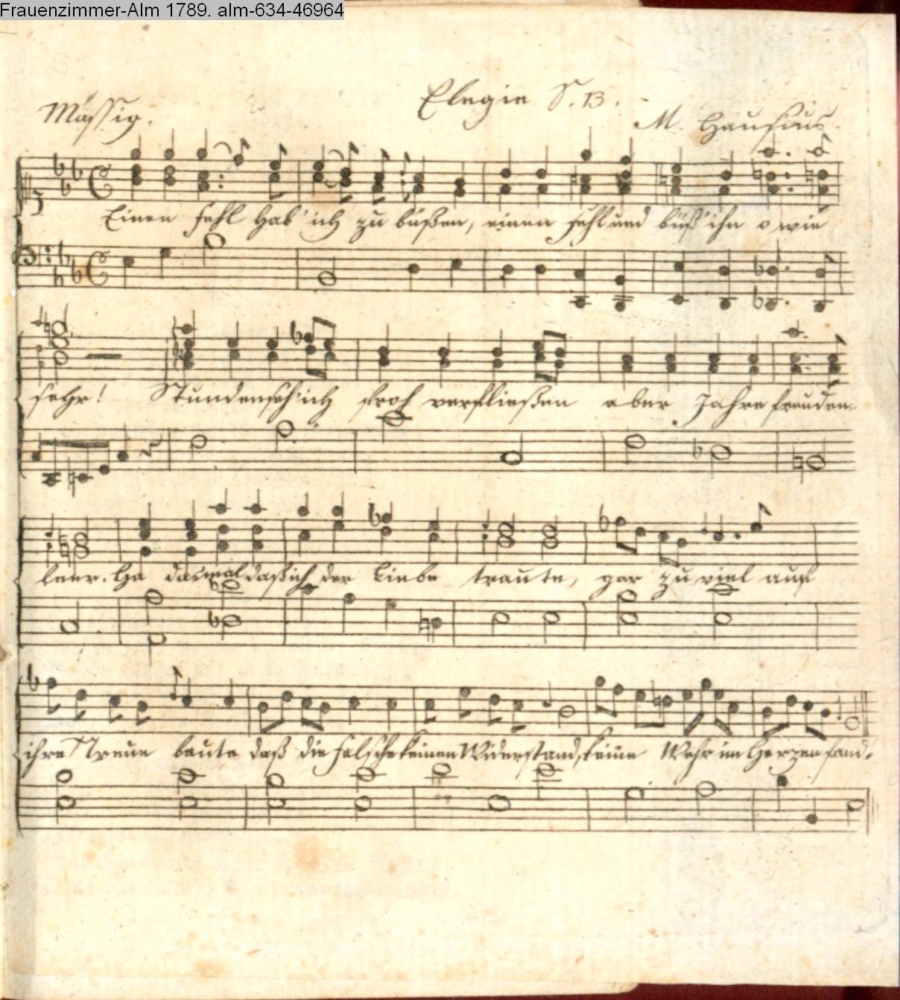 Frauenzimmer-Alm 1789. alm-634-46964
Elegie S. 13.
Mässig.
M. Hausius.
Einen Fehl hab' ich zu büßen, einen Fehl und büß' ihn o wie
sehr! Stunden seh' ich froh verfließen aber Jahre freuden-
leer. Ha daß ich der Liebe traute, gar zu viel auf
ihre Treue baute daß die Falsche keinen Widerstand, keine Wehr im Herzen fand.